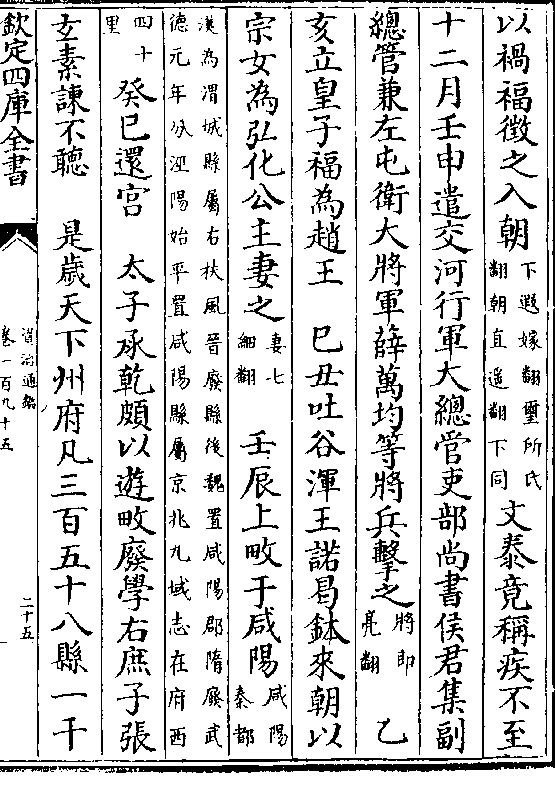 以禍福徵之入朝下遐嫁翻璽所氏翻朝直遥翻下同文泰竟稱疾不至
十二月壬申遣交河行軍大總管吏部尚書侯君集副
總管兼左屯衛大將軍薛萬均等將兵擊之將即亮翻 乙
亥立皇子福為趙王 已丑吐谷渾王諾曷鉢來朝以
宗女為弘化公主妻之妻七細翻 壬辰上畋于咸陽咸陽秦都
漢為渭城縣屬右扶風晉廢縣後魏置咸陽郡隋廢武
德元年分涇陽始平置咸陽縣屬京兆九域志在府西
四十里 癸巳還宮 太子承乾頗以遊畋廢學右庶子張
玄素諫不聽 是歲天下州府凡三百五十八縣一千
欽定四庫全書
資治通鑑
卷一百九十五
二十五